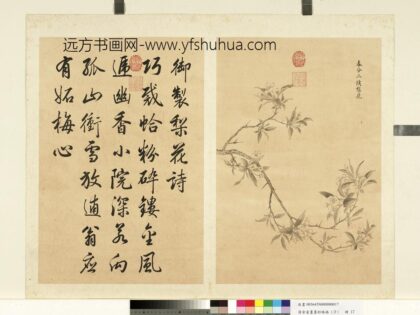 远方书画网-www.yfshuhua.com
御製梨花詩
巧裁蛤粉碎鏤金風
遞幽香小院深若向
孤山衝雪放逋翁應
有妬梅心
春分二候梨花